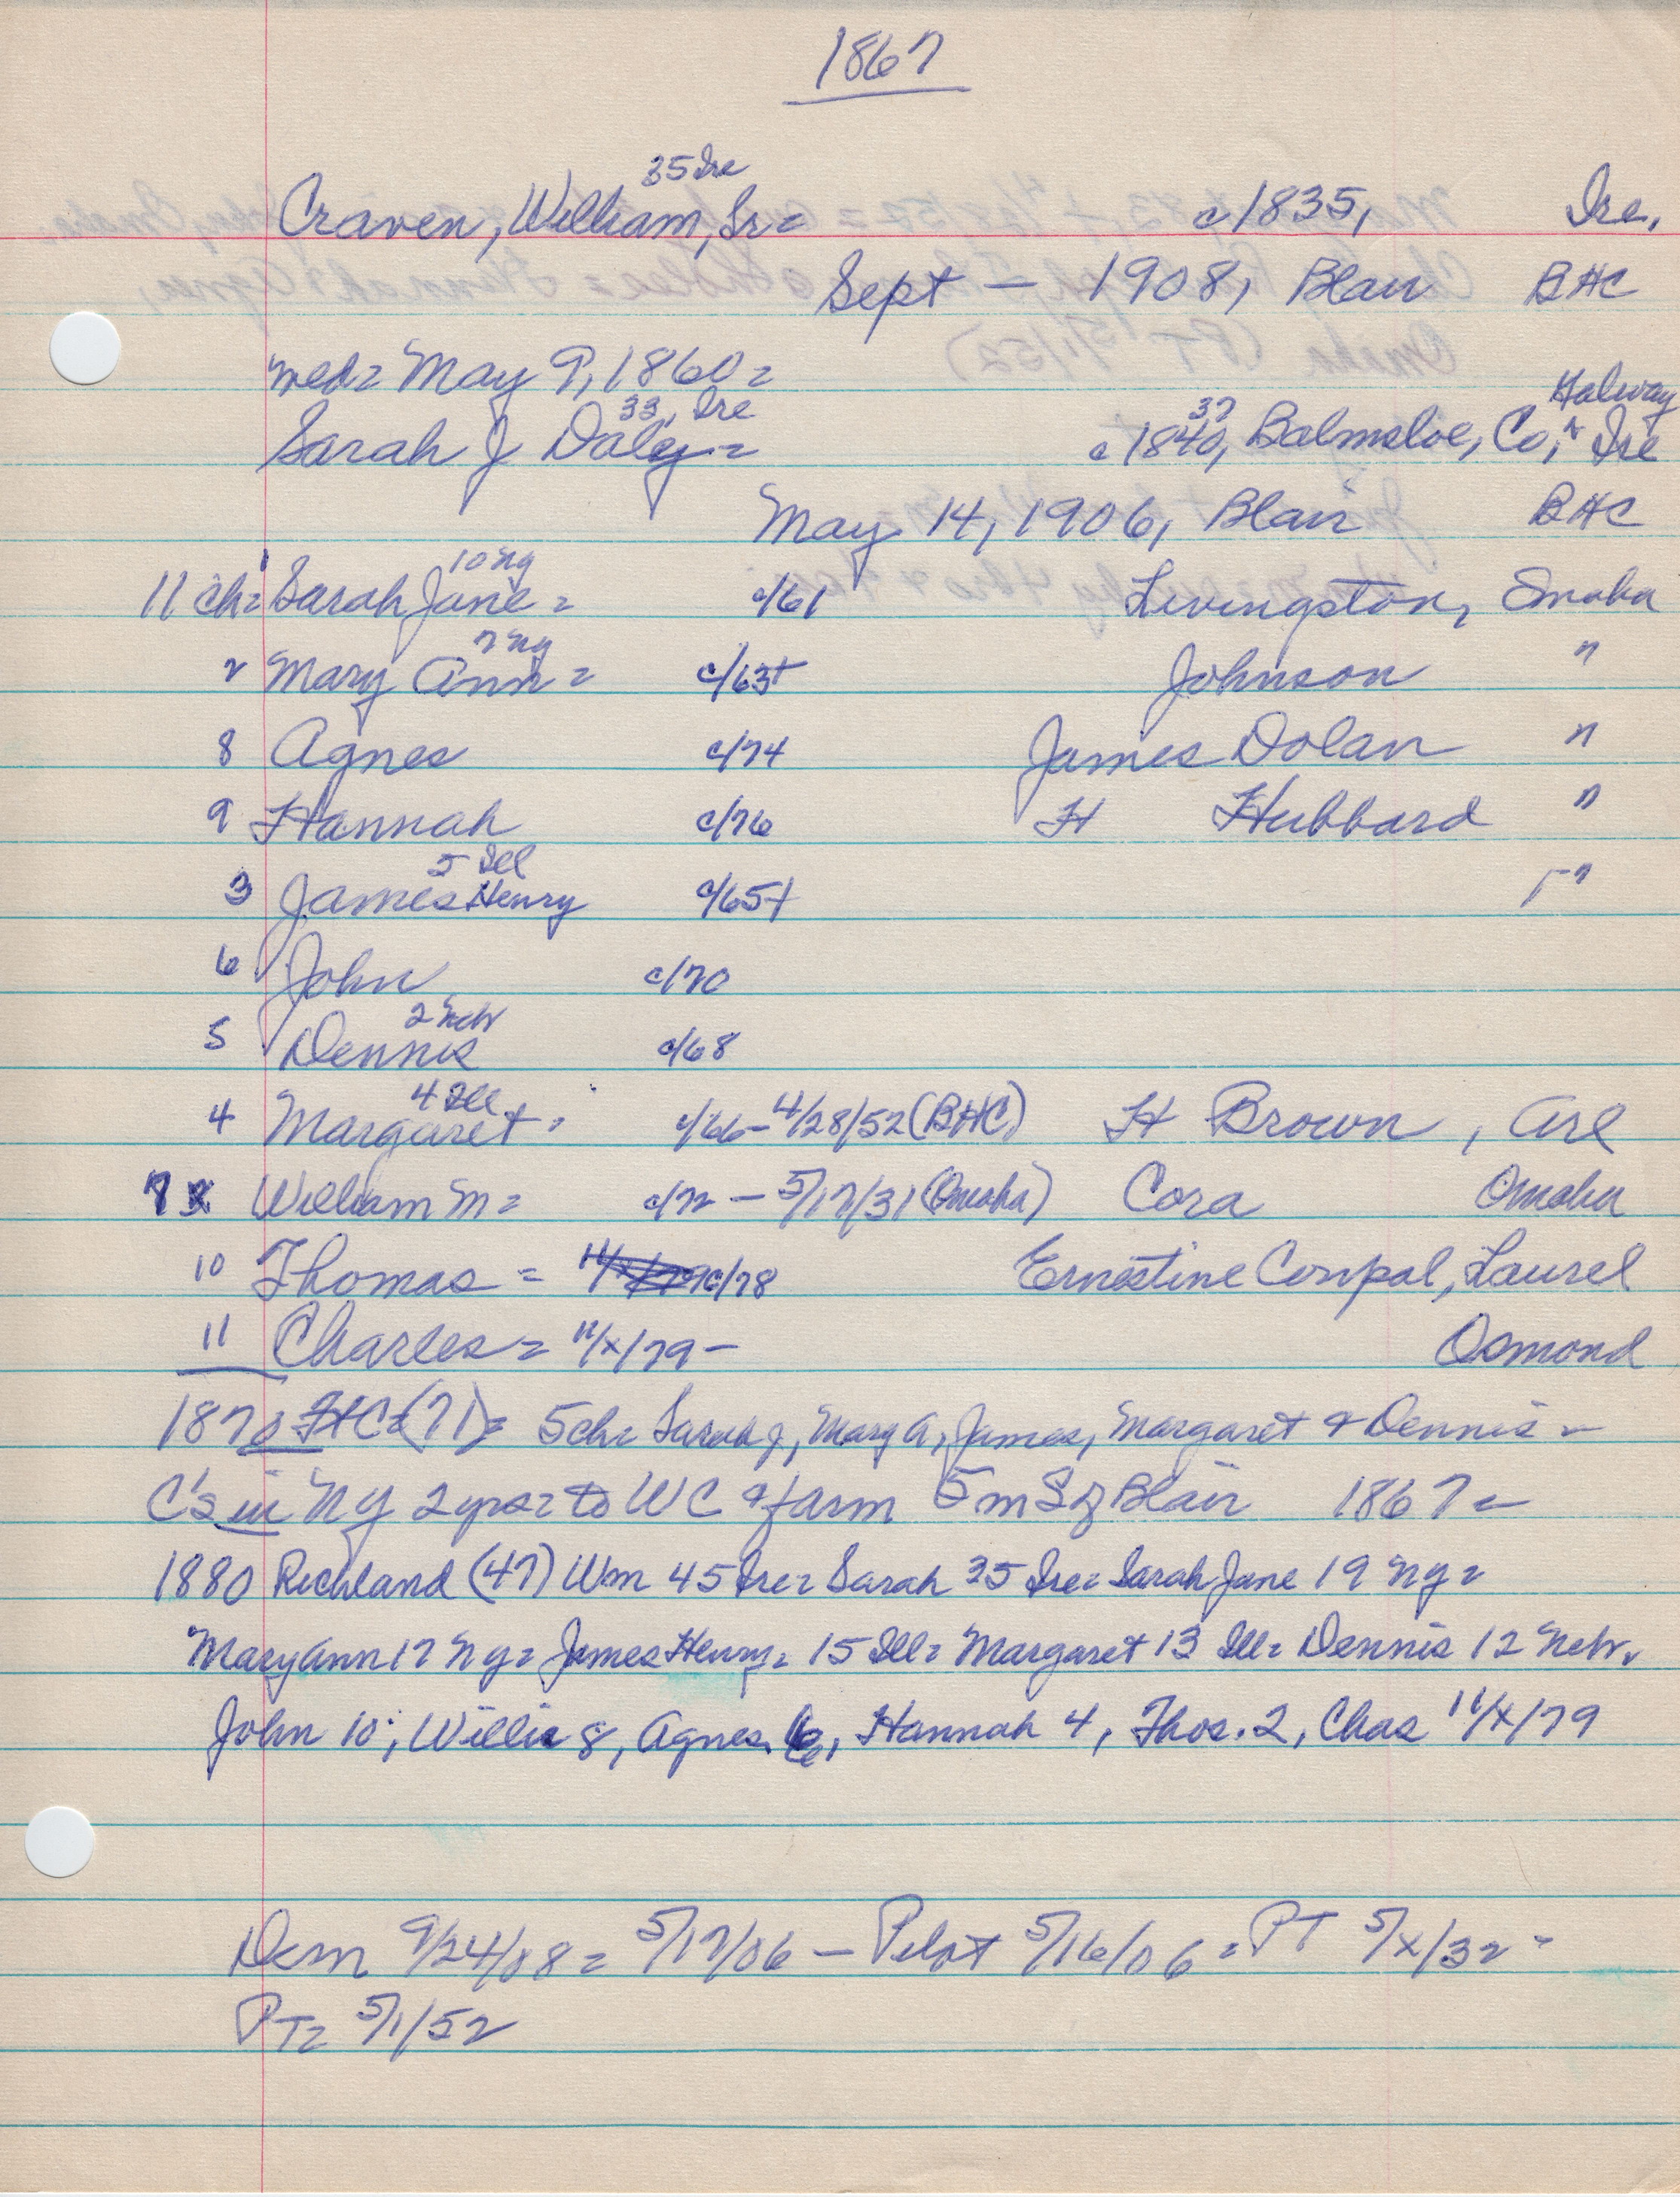 1867
35 Ire
Craven, William, Sr = c 1835, Ire.
Sept — 1908, Blair BHC
med = May 9, 1860 =
33, Ire 37 Galway
Sarah J Daley = c 1840, Balmsloe, Co, Ire
May 14, 1906, Blair BHC
10 Ny
11 ch = 1 Sarah Jane = c/61 Livingston, Omaha
7 Ny
2 Mary Ann = c/63+ Johnson "
8 Agnes c/74 James Dolan "
9 Hannah c/76 H Hubbard "
5 Ill
3 James Henry c/65+ "
6 John c/70
2 Nebr
5 Dennis c/68
4 Ill
4 Margaret = c/66 - 4/28/52 (BHC) H Brown, Arl
7 William M = c/72 — 5/17/31 (Omaha) Cora Omaha
10 Thomas = c/78 Ernestine Conpal, Laurel
11 Charles = 11/x/79 — Osmond
1870 FHC = (71) = 5 ch = Sarah J, Mary A, James, Margaret & Dennis =
C's in Ny 2 yrs = to WC & farm 5 m S of Blair 1867 =
1880 Richland (47) Wm 45 Ire = Sarah 35 Ire = Sarah Jane 19 Ny =
Mary Ann 17 Ny = James Henry = 15 Ill = Margaret 13 Ill = Dennis 12 Nebr.
John 10; Willie 8, Agnes 6, Hannah 4, Thos. 2, Chas 11/x/79
Dem 9/24/08 = 5/17/06 — Pilot 5/16/06 = PT 5/x/32 =
PT = 5/1/52